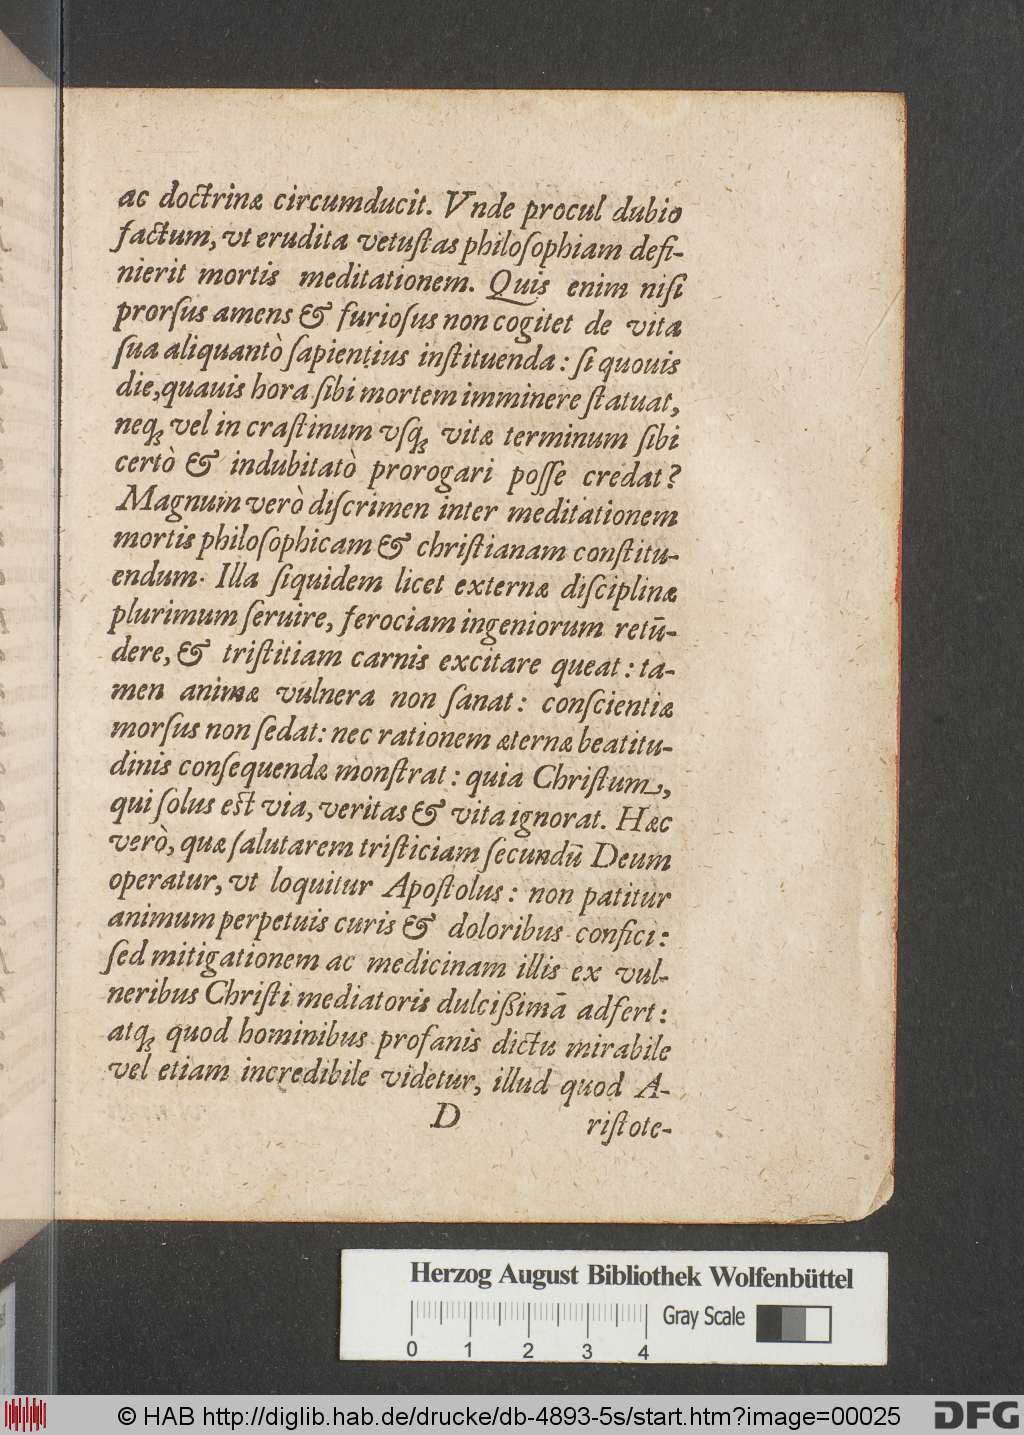 ac doctrinæ circumducit. Vnde procul dubio
factum, vt erudita vetuſtas philoſophiam defi-
nierit mortis meditationem. Quis enim niſi
prorſus amens & furioſus non cogitet de vita
ſua aliquantò ſapientius inſtituenda: ſi quouis
die, quauis hora ſibi mortem imminere ſtatuat,
neq́; vel in craſtinum vſq́; vitæ terminum ſibi
certò & indubitatò prorogari poſſe credat?
Magnum verò diſcrimen inter meditationem
mortis philoſophicam & chriſtianam conſtitu-
endum. Illa ſiquidem licet externæ diſciplinæ
plurimum ſeruire, ferociam ingeniorum retū-
dere, & triſtitiam carnis excitare queat: ta-
men animæ vulnera non ſanat: conſcientiæ
morſus non ſedat: nec rationem æternæ beatitu-
dinis conſequendæ monſtrat: quia Chriſtum,
qui ſolus eſt via, veritas & vita ignorat. Hæc
verò, quæ ſalutarem triſticiam ſecundū Deum
operatur, vt loquitur Apoſtolus: non patitur
animum perpetuis curis & doloribus confici:
ſed mitigationem ac medicinam illis ex vul-
neribus Chriſti mediatoris dulcißimā adfert:
atq́; quod hominibus profanis dictu mirabile
vel etiam incredibile videtur, illud quod A-
D riſtote-
Herzog August Bibliothek Wolfenbüttel
0 1 2 3 4 Gray Scale
© HAB http://diglib.hab.de/drucke/db-4893-5s/start.htm?image=00025 DFG